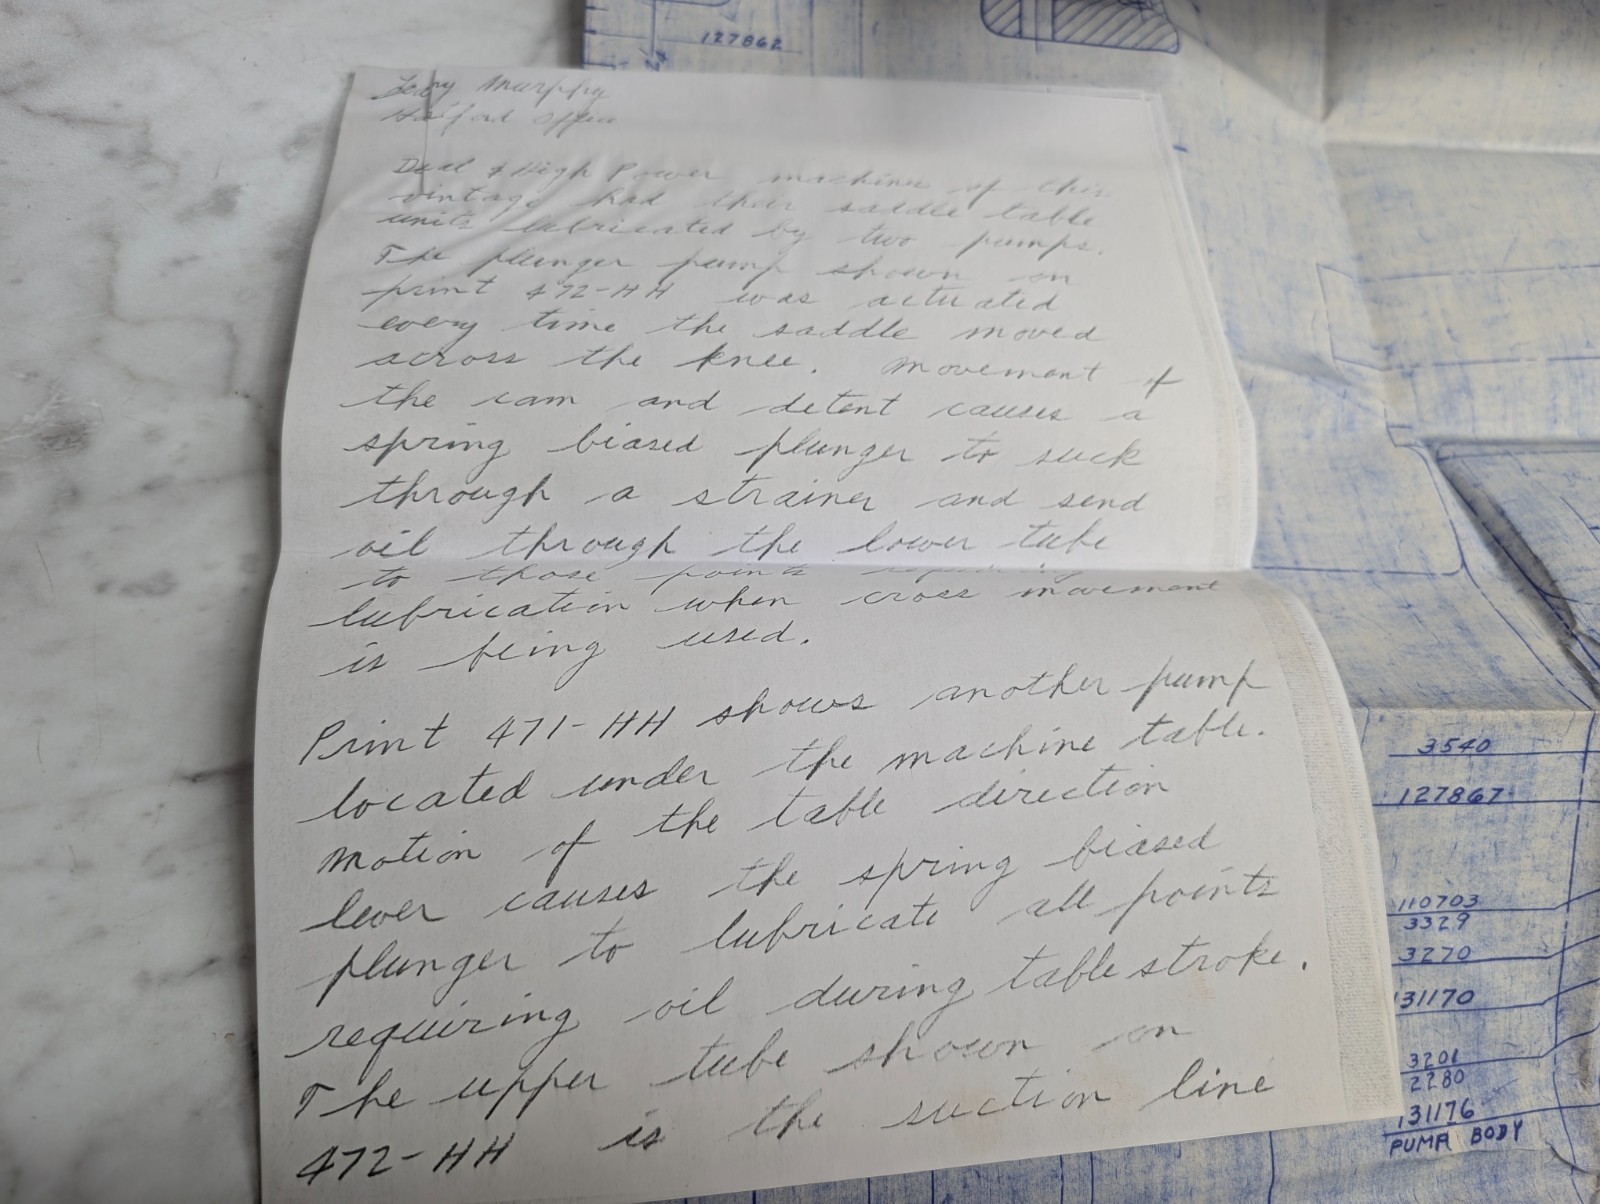 127862
Murphy
Office
Dual & High Power machines of this
vintage had their saddle table
units lubricated by two pumps.
The plunger pump shown on
print 472-HH was actuated
every time the saddle moved
across the knee. Movement of
the cam and detent causes a
spring biased plunger to suck
through a strainer and send
oil through the lower tube
to those points requiring
lubrication when cross movement
is being used.
Print 471-HH shows another pump
located under the machine table.
Motion of the table direction
lever causes the spring biased
plunger to lubricate all points
requiring oil during table stroke.
The upper tube shown on
472-HH is the suction line
3540
127867
110703
3329
3270
131170
3201
2280
131176
PUMP BODY